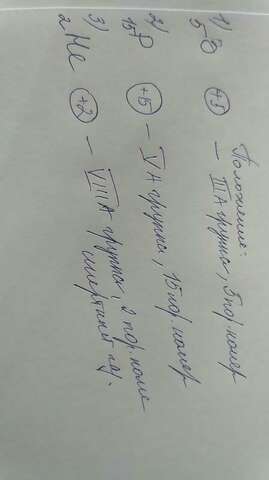 Положение:
1) ₅B (+5) – III А группа, 5 пор. номер
2) ₁₅P (+15) – V А группа, 15 пор. номер
3) ₂He (+2) – VIII А группа, 2 пор. номе
инертный газ.